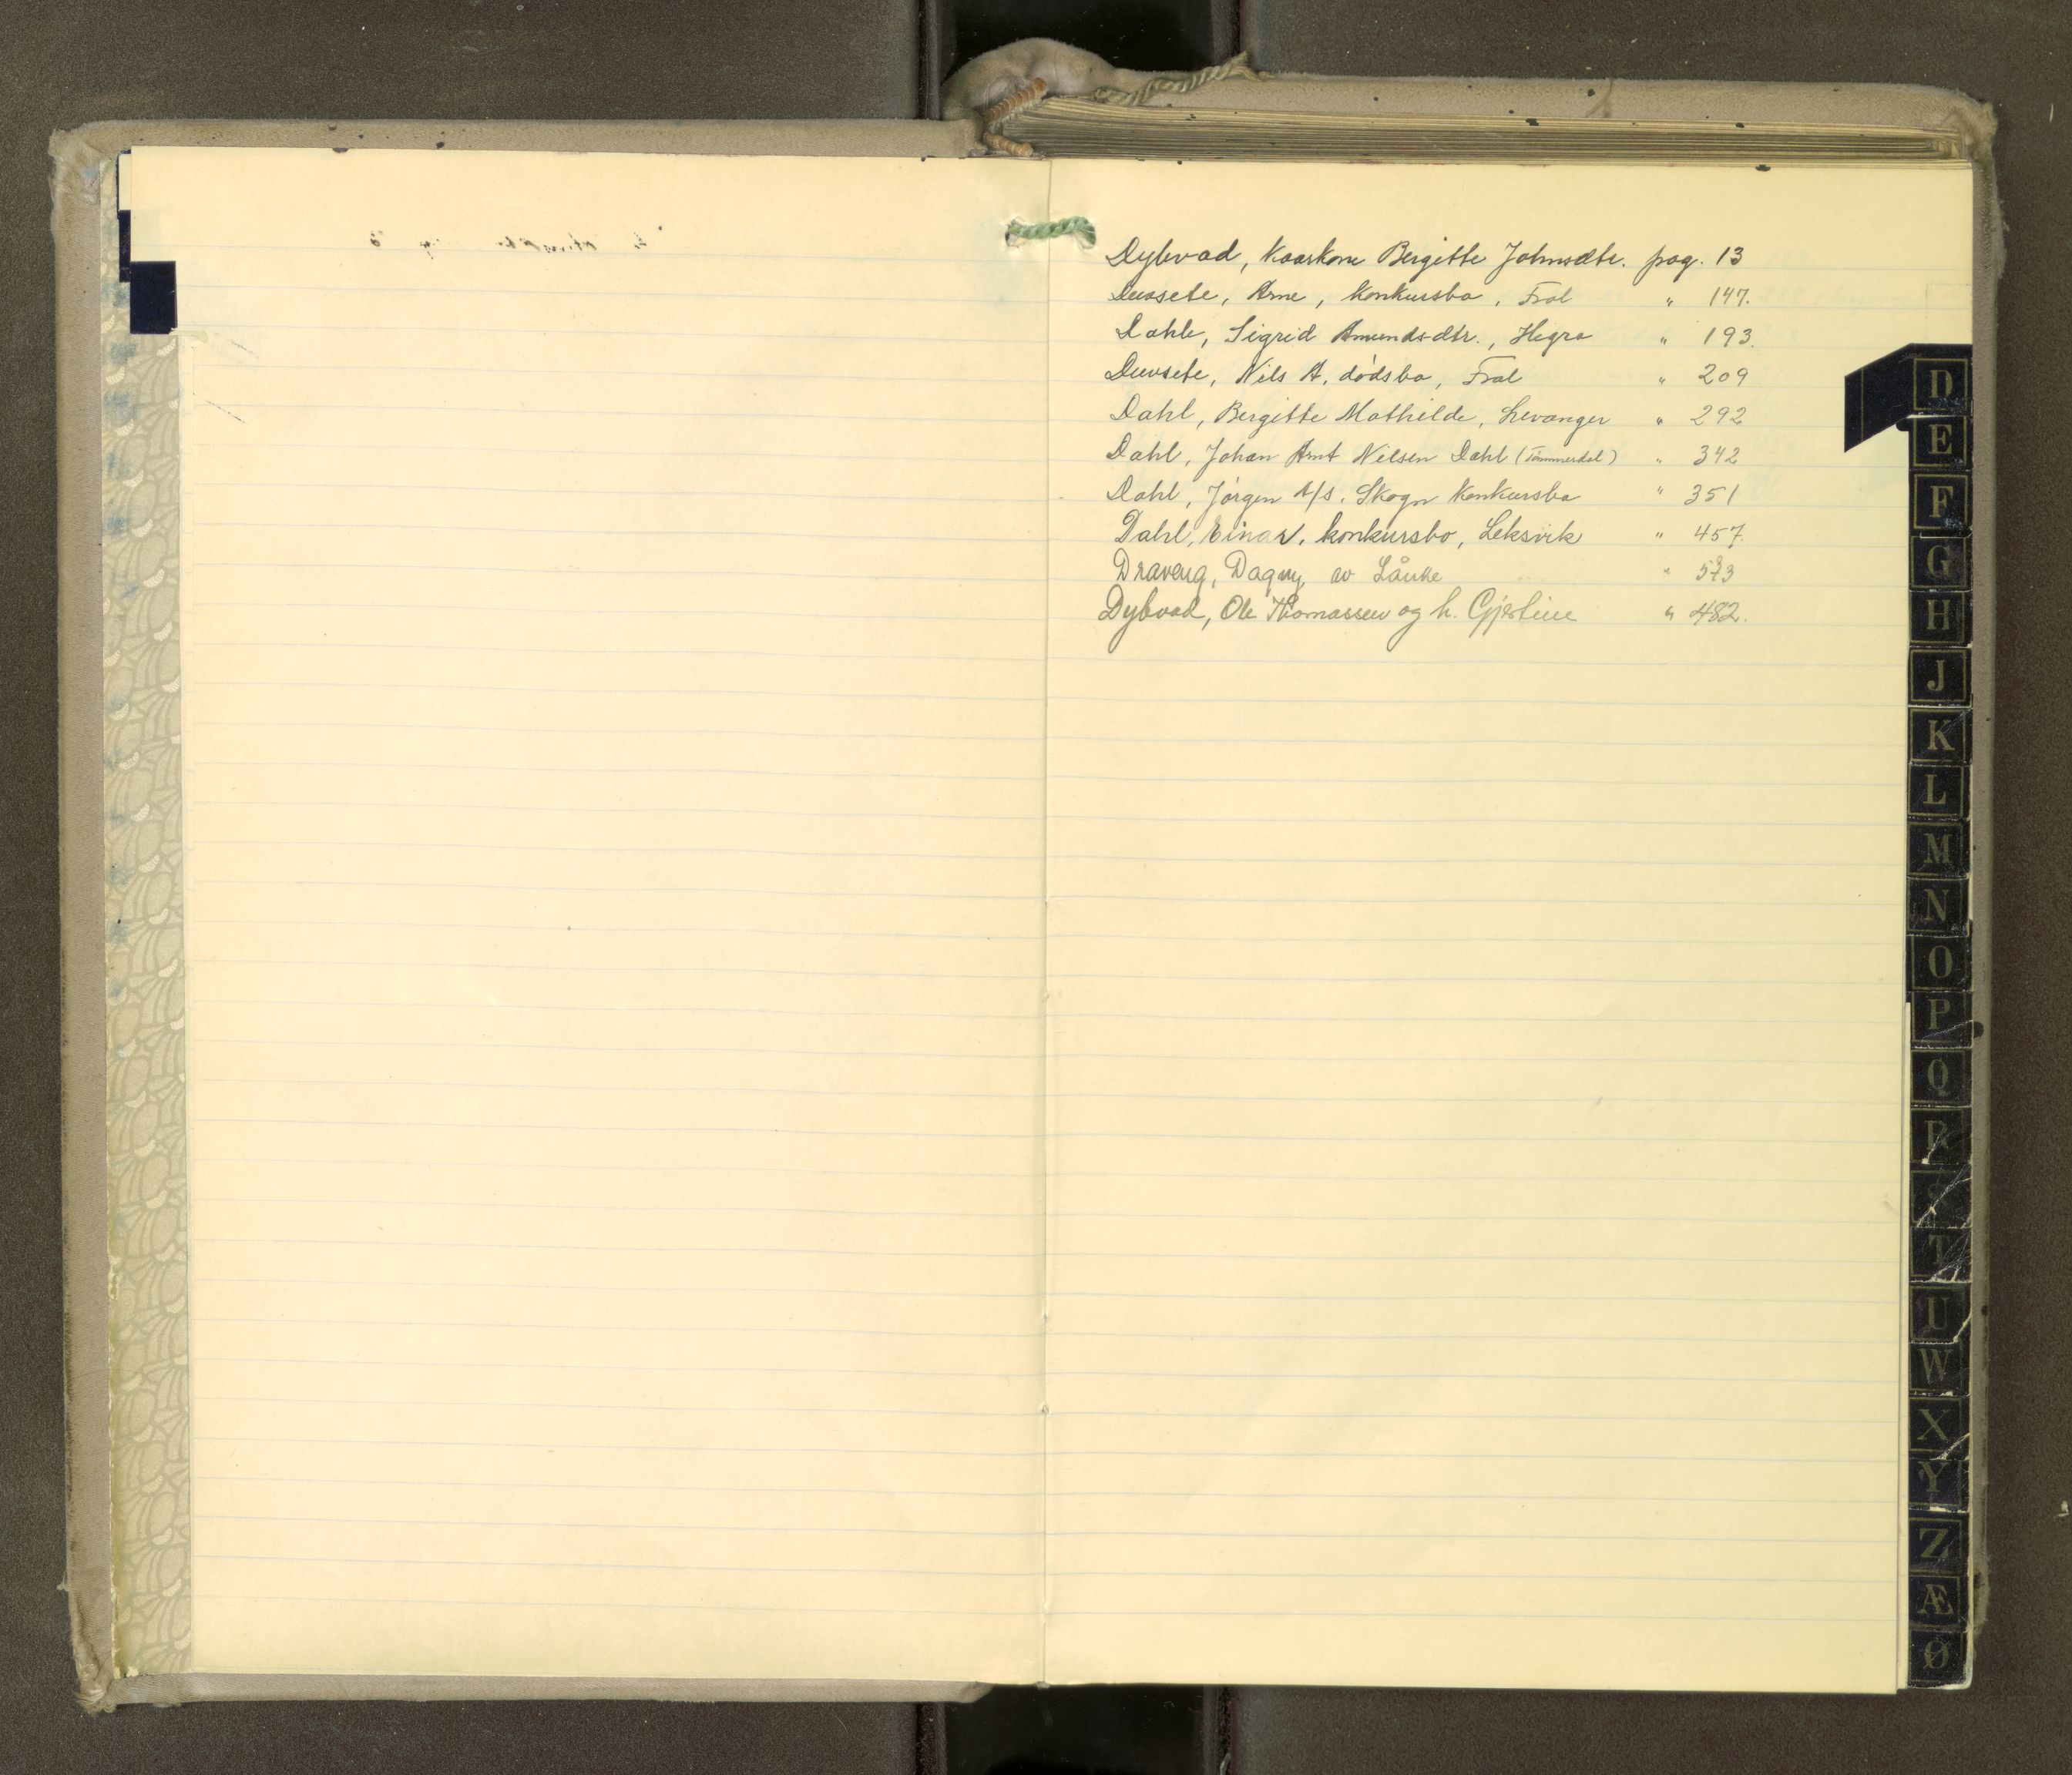 Dybvad, Kaarkone Bergitte Johnsdtr. pag. 13
Duvsete, Arne, Konkursbo, Frol " 147.
Dahle, Sigrid Amundsdtr., Hegra " 193.
Duvsete, Nils A. dödsbo, Frol " 209
Dahl, Bergitte Mathilde, Levanger " 292
Dahl, Johan Arnt Nilsen Dahl (Tömmerdal) " 342
Dahl, Jörgen A/S. Skogn Konkursbo " 351
Dahl, Einar, konkursbo, Leksvik " 457.
Draveng, Dagny, av Lånke "
Dybvad, Ole Thomassen og h. Gjertine " 482.
D
E
F
G
H
J
K
L
M
N
O
P
Q
R
S
T
U
W
X
Y
Z
Æ
Ø